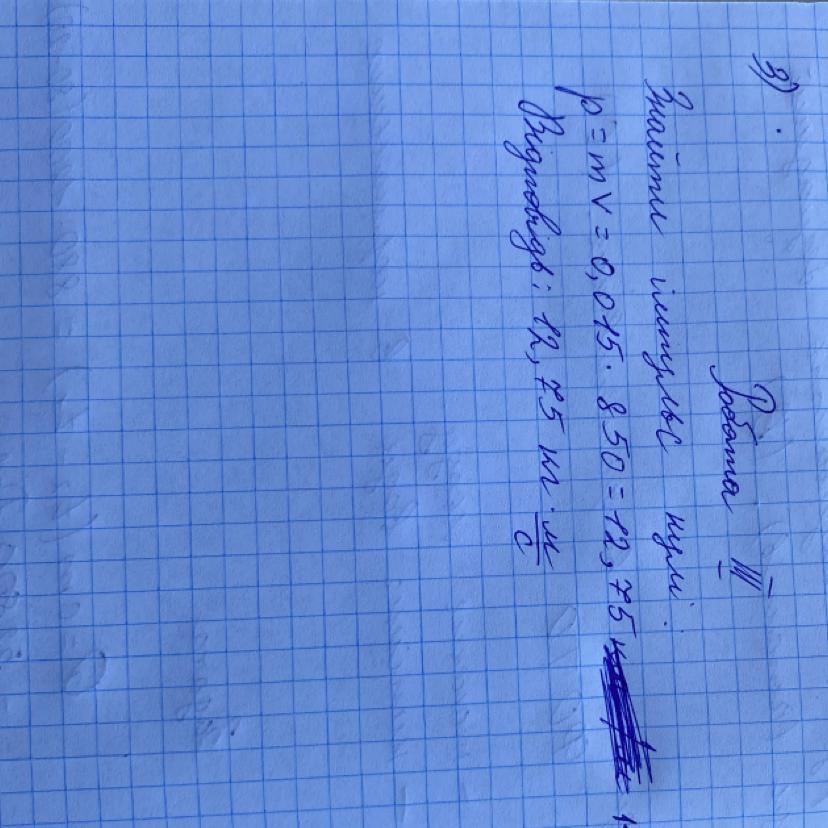 Робота III
3).
Знайти імпульс кулі:
p = m v = 0,015 · 850 = 12,75
Відповідь: 12,75 кг · м/с